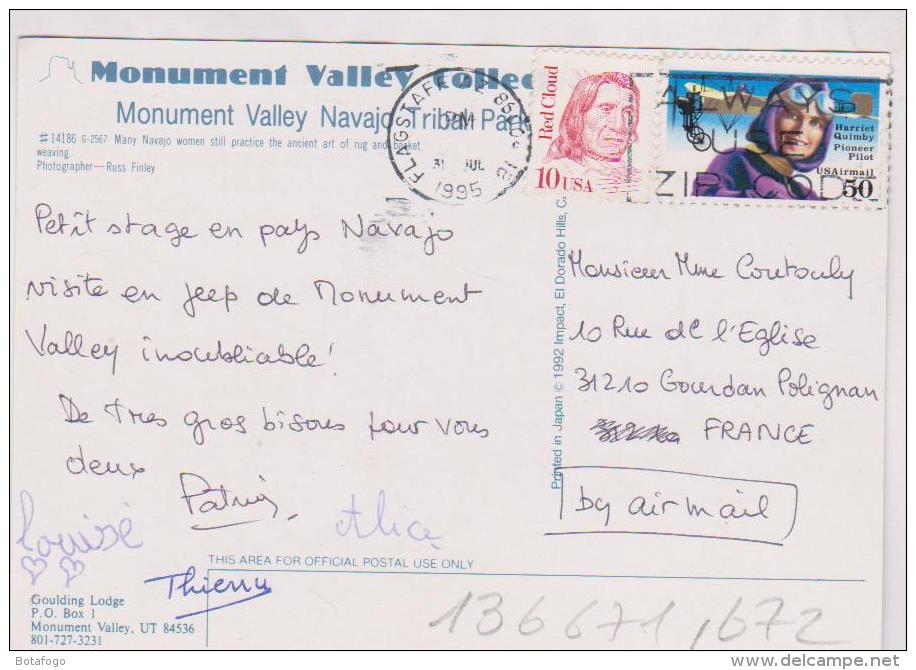 Monument Valley Collec
Monument Valley Navajo Tribal Pa
#14186 G-2567 Many Navajo women still practice the ancient art of rug and basket
weaving.
Photographer—Russ Finley
FLAGSTAFF AZ 860
PM
31 JUL
1995
Red Cloud
10 USA
ALWAYS
USE
ZIP CODE
Harriet
Quimby
Pioneer
Pilot
USAirmail
50
Petit stage en pays Navajo
visite en jeep de Monument
Valley inoubliable!
De très gros bisous pour vous
deux
Louise
Alice
Thierry
Printed in Japan © 1992 Impact, El Dorado Hills, C
Monsieur Mme Coutouly
10 Rue de l'Eglise
31210 Gourdan Polignan
FRANCE
by air mail
THIS AREA FOR OFFICIAL POSTAL USE ONLY
Goulding Lodge
P.O. Box 1
Monument Valley, UT 84536
801-727-3231
136671,672
Botafogo
www.delcampe.net